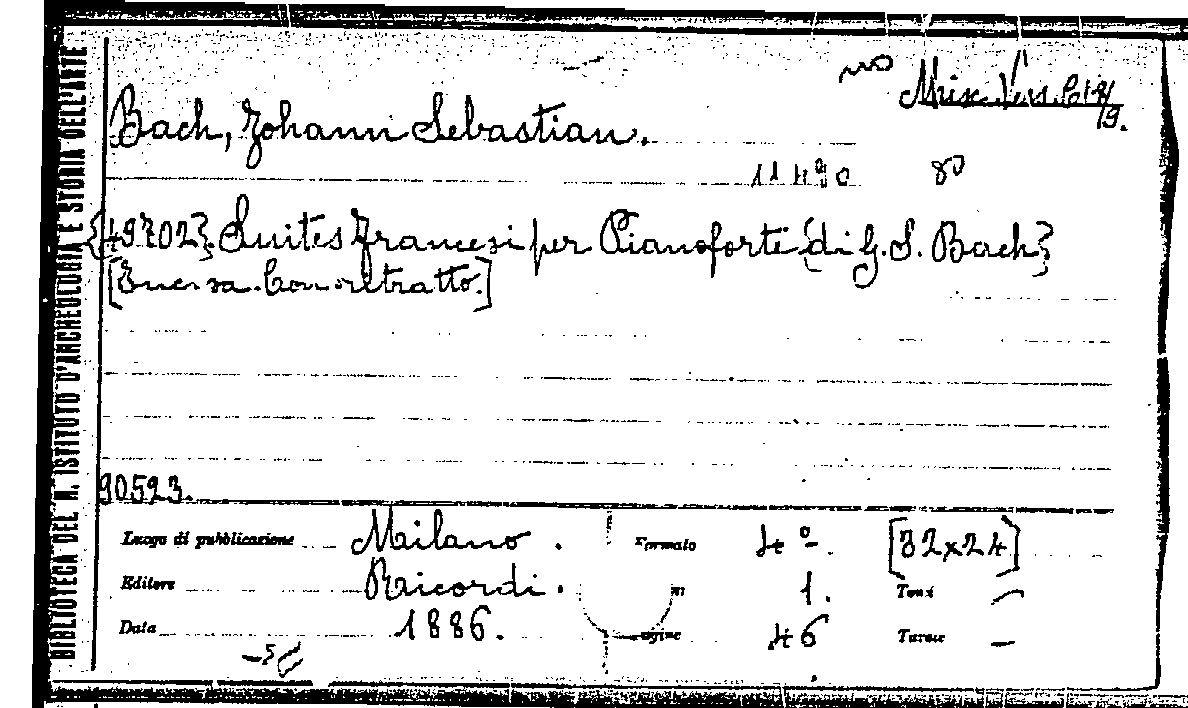 BIBLIOTECA DEL R. ISTITUTO D'ARCHEOLOGIA E STORIA DELL'ARTE
Bach, Johann Sebastian.
11490
{49702}. Suites francesi per Pianoforte {di G. S. Bach}
[Con ritratto.]
90523.
Luogo di pubblicazione Milano. Formato 4º. [32x24]
Editore Ricordi. 1. Tomi —
Data 1886. Pagine 46 Tavole —